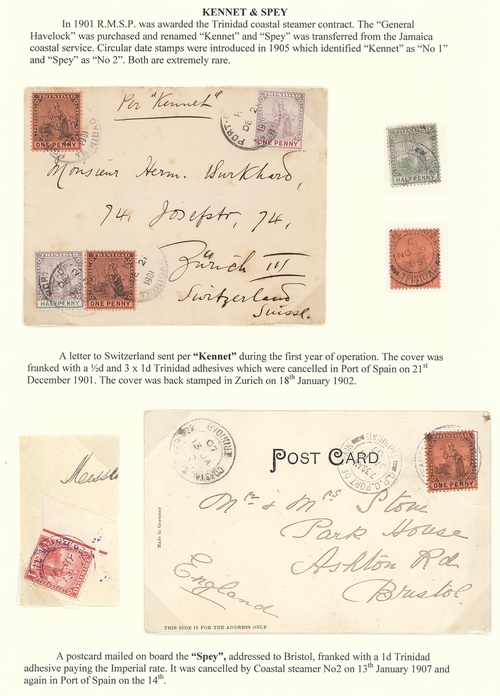 KENNET & SPEY
In 1901 R.M.S.P. was awarded the Trinidad coastal steamer contract. The “General
Havelock” was purchased and renamed “Kennet” and “Spey” was transferred from the Jamaica
coastal service. Circular date stamps were introduced in 1905 which identified “Kennet” as “No 1”
and “Spey” as “No 2”. Both are extremely rare.
Per "Kennet"
TRINIDAD
ONE PENNY
TRINIDAD
1901
TRINIDAD
ONE PENNY
DE 2
HALFPENNY
Monsieur Herm. Burkhard,
74, Josefstr, 74,
Zürich III
Switzerland
Suisse.
TRINIDAD
HALFPENNY
TRINIDAD
ONE PENNY
DE 21
1901
TRINIDAD
A letter to Switzerland sent per “Kennet” during the first year of operation. The cover was
franked with a ½d and 3 x 1d Trinidad adhesives which were cancelled in Port of Spain on 21st
December 1901. The cover was back stamped in Zurich on 18th January 1902.
POST CARD
COASTAL
TRINIDAD
ONE PENNY
Made in Germany
Mr & Mrs Stow
Park House
Ashton Rd
Bristol
England
THIS SIDE IS FOR THE ADDRESS ONLY
A postcard mailed on board the “Spey”, addressed to Bristol, franked with a 1d Trinidad
adhesive paying the Imperial rate. It was cancelled by Coastal steamer No2 on 13th January 1907 and
again in Port of Spain on the 14th.